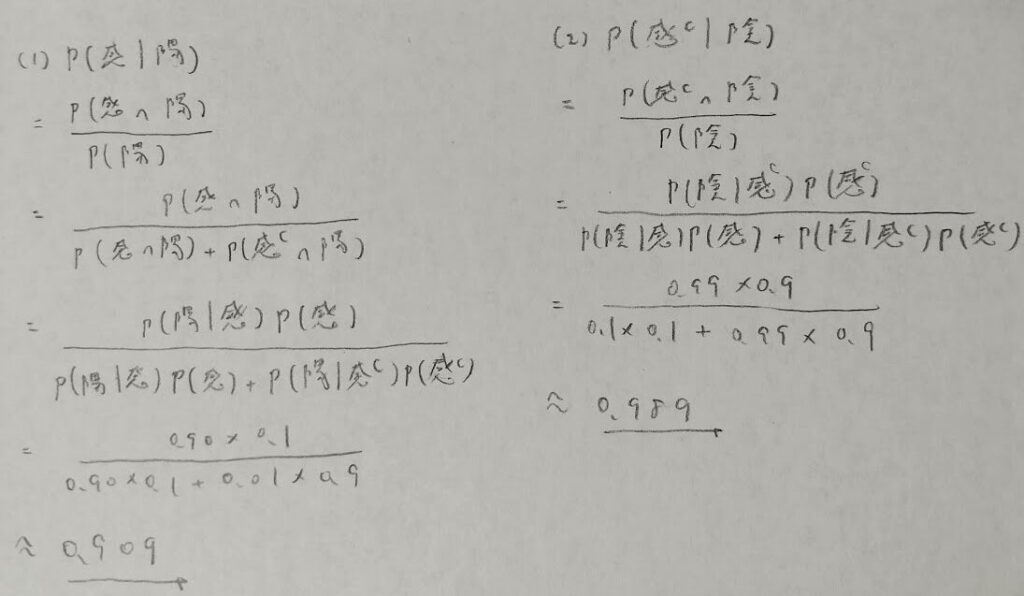 (1) P(感|陽)
= P(感∩陽) / P(陽)
= P(感∩陽) / P(感∩陽)+P(感ᶜ∩陽)
= P(陽|感)P(感) / P(陽|感)P(感)+P(陽|感ᶜ)P(感ᶜ)
= 0.90×0.1 / 0.90×0.1+0.01×0.9
≈ 0.909
(2) P(感ᶜ|陰)
= P(感ᶜ∩陰) / P(陰)
= P(陰|感ᶜ)P(感ᶜ) / P(陰|感)P(感)+P(陰|感ᶜ)P(感ᶜ)
= 0.99×0.9 / 0.1×0.1+0.99×0.9
≈ 0.989